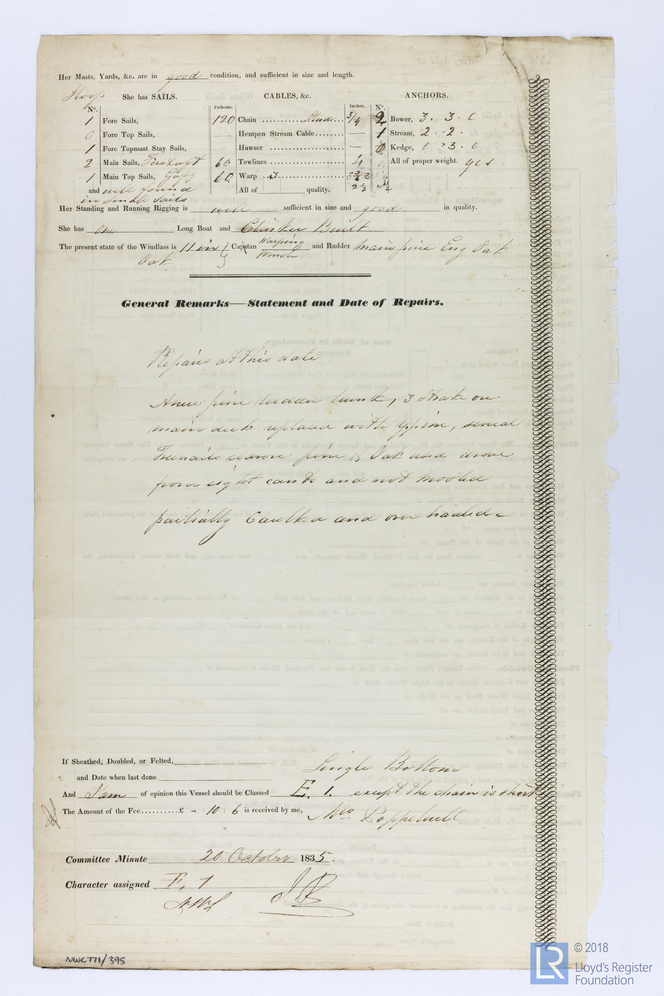 Her Masts, Yards, &c. are in good condition, and sufficient in size and length.
Sloop She has SAILS.
CABLES, &c.
ANCHORS.
N.
Fathoms.
Inches.
N.
1 Fore Sails,
120 Chain 3/4
2 Bower, 3 . 3 . 0
0 Fore Top Sails,
Hempen Stream Cable
1 Stream, 2 - 2 -
1 Fore Topmast Stay Sails,
Hawser
0 Kedge, 0 3 . 0
2 Main Sails,
60 Towlines 4
All of proper weight. yes
1 Main Top Sails, Gaff
60 Warp
All of quality.
and well found
in small sails
Her Standing and Running Rigging is well sufficient in size and good in quality.
She has one Long Boat and Clinker Built
The present state of the Windlass is Capstan Warping Winch and Rudder Eng Oak
Oak
General Remarks—Statement and Date of Repairs.
Repairs at this date
A new pine rudder trunk, 3 Strake on
main deck replaced with pine, several
Treenails
from eight cants and not
partially Caulked and over hauled
If Sheathed, Doubled, or Felted,
and Date when last done
Single Bottom
And I am of opinion this Vessel should be Classed E. 1. except the chain is short
The Amount of the Fee £ - : 10 : 6 is received by me,
Committee Minute 20 October 1835.
Character assigned E, 1
NWCT71/395
LR
© 2018
Lloyd's Register
Foundation